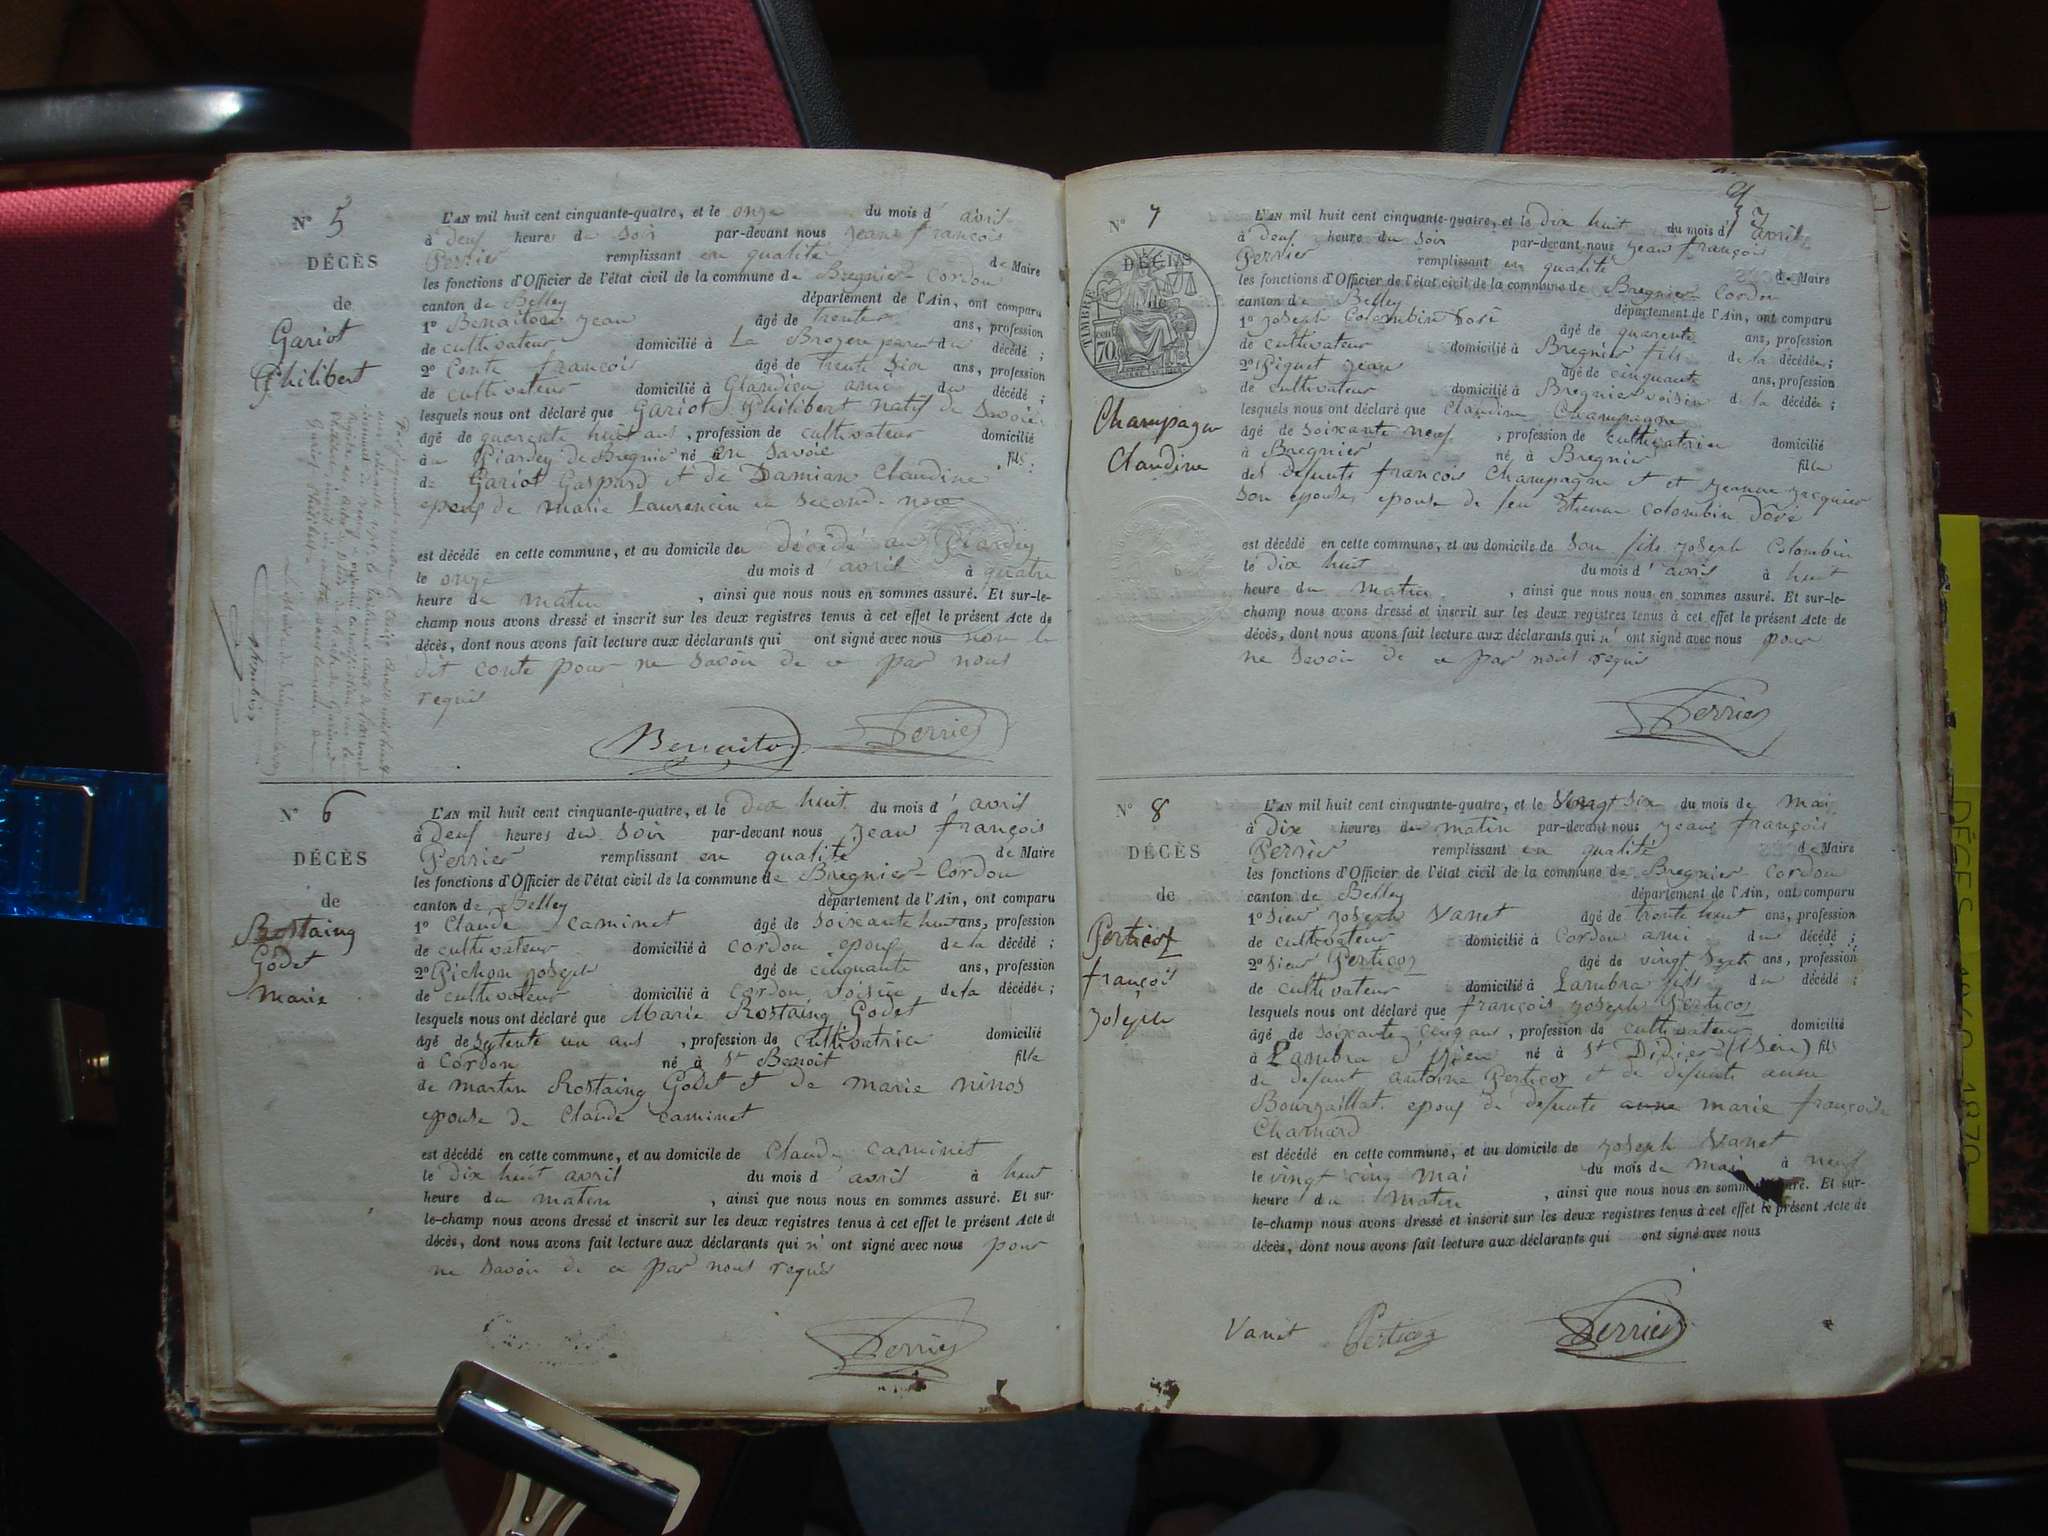 N° 5
DÉCÈS
de
Gariot
Philibert
L'AN mil huit cent cinquante-quatre, et le onze du mois d' avril
à deux heures du soir par-devant nous jean françois
Perrier remplissant en qualité de Maire
les fonctions d'Officier de l'état civil de la commune de Bregnier-Cordon
canton de Belley département de l'Ain, ont comparu
1° Benaiton jean âgé de trente ans, profession
de cultivateur domicilié à La parent du décédé ;
2° Conte françois âgé de trente six ans, profession
de cultivateur domicilié à Glandieu ami du décédé ;
lesquels nous ont déclaré que Gariot Philibert natif de Savoie
âgé de quarente huit ans, profession de cultivateur domicilié
à Piardey de Bregnier né en Savoie fils
de Gariot Gaspard et de Damian Claudine
epoux de marie Laurencin en second noce
est décédé en cette commune, et au domicile du décédé au Piardey
le onze du mois d' avril à quatre
heure du matin, ainsi que nous nous en sommes assuré. Et sur-le-
champ nous avons dressé et inscrit sur les deux registres tenus à cet effet le présent Acte de
décès, dont nous avons fait lecture aux déclarants qui ont signé avec nous non le
dit conte pour ne savoir de ce par nous
requis
Benaiton Perrier
N° 6
DÉCÈS
de
Rostaing
Godet
marie
L'AN mil huit cent cinquante-quatre, et le dix huit du mois d' avril
à deux heures du soir par-devant nous jean françois
Perrier remplissant en qualité de Maire
les fonctions d'Officier de l'état civil de la commune de Bregnier-Cordon
canton de Belley département de l'Ain, ont comparu
1° Claude caminet âgé de soixante huit ans, profession
de cultivateur domicilié à cordon epoux de la décédé ;
2° Pichon joseph âgé de cinquante ans, profession
de cultivateur domicilié à cordon voisin de la décédée ;
lesquels nous ont déclaré que Marie Rostaing Godet
âgé de septente un ans, profession de cultivatrice domicilié
à Cordon né à St Benoit fille
de martin Rostaing Godet et de marie ninos
epouse de Claude caminet
est décédé en cette commune, et au domicile de Claude caminet
le dix huit avril du mois d' avril à huit
heure du maten, ainsi que nous nous en sommes assuré. Et sur-
le-champ nous avons dressé et inscrit sur les deux registres tenus à cet effet le présent Acte de
décès, dont nous avons fait lecture aux déclarants qui n' ont signé avec nous pour
ne savoir de ce par nous requis
Perrier
N° 7
DÉCÈS
TIMBRE
70
Champagne
Claudine
L'AN mil huit cent cinquante-quatre, et le dix huit du mois d' avril
à deux heure du soir par-devant nous jean françois
Perrier remplissant en qualité de Maire
les fonctions d'Officier de l'état civil de la commune de Bregnier-Cordon
canton de Belley département de l'Ain, ont comparu
1° joseph Colombin Doré âgé de quarente ans, profession
de cultivateur domicilié à Bregnier fils de la décédée ;
2° Piguet jean âgé de cinquante ans, profession
de cultivateur domicilié à Bregnier voisin d la décédée ;
lesquels nous ont déclaré que Claudine Champagne
âgé de soixante neuf, profession de cultivatrice domicilié
à Bregnier né à Bregnier fille
des defunts françois Champagne et et jeanne jacquier
son epouse, epouse de feu Etienne Colombin Doré
est décédé en cette commune, et au domicile de son fils joseph Colombin
le dix huit du mois d' avril à huit
heure du matin, ainsi que nous nous en sommes assuré. Et sur-le-
champ nous avons dressé et inscrit sur les deux registres tenus à cet effet le présent Acte de
décès, dont nous avons fait lecture aux déclarants qui n' ont signé avec nous pour
ne savoir de ce par nous requis
Perrier
N° 8
DÉCÈS
de
Perticoz
françois
joseph
L'AN mil huit cent cinquante-quatre, et le vingt six du mois de mai
à dix heures du matin par-devant nous jean françois
Perrier remplissant en qualité de Maire
les fonctions d'Officier de l'état civil de la commune de Bregnier Cordon
canton de Belley département de l'Ain, ont comparu
1° sieur joseph Vanet âgé de trente huit ans, profession
de cultivateur domicilié à Cordon ami du décédé ;
2° sieur Perticoz âgé de vingt sept ans, profession
de cultivateur domicilié à Lambra fils du décédé ;
lesquels nous ont déclaré que françois joseph Perticoz
âgé de soixante cinq ans, profession de cultivateur domicilié
à Lambra d'izieu né à St Didier (isère) fils
de defunt antoine Perticoz et de defunte anne
Bourgaillat epoux de defunte anne marie françoise
Charnard
est décédé en cette commune, et au domicile de joseph Vanet
le vingt cinq mai du mois de mai à neuf
heure du matin, ainsi que nous nous en sommes assuré. Et sur-
le-champ nous avons dressé et inscrit sur les deux registres tenus à cet effet le présent Acte de
décès, dont nous avons fait lecture aux déclarants qui ont signé avec nous
Vanet Perticoz Perrier
DÉCÈS 1860-1870